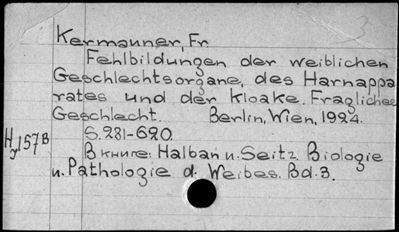 Kermauner, Fr.
Fehlbildungen der weiblichen
Geschlechtsorgane, des Harnappa-
rates und der Kloake. Fragliches
Geschlecht. Berlin, Wien, 1924.
S. 281-620.
В книге: Halban u. Seitz. Biologie
u. Pathologie d. Weibes. Bd. 3.